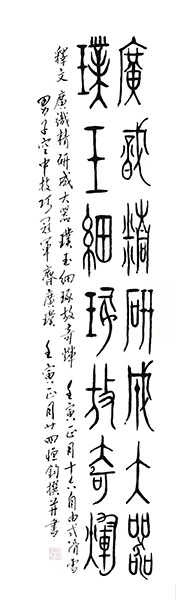 廣識精研成大器
璞玉細琢放奇煇
釋文 廣識精研成大器 璞玉細琢放奇煇 壬寅正月十六自由式滑雪
男子空中技巧冠軍齊廣璞 壬寅正月廿四恒鈞撰并書